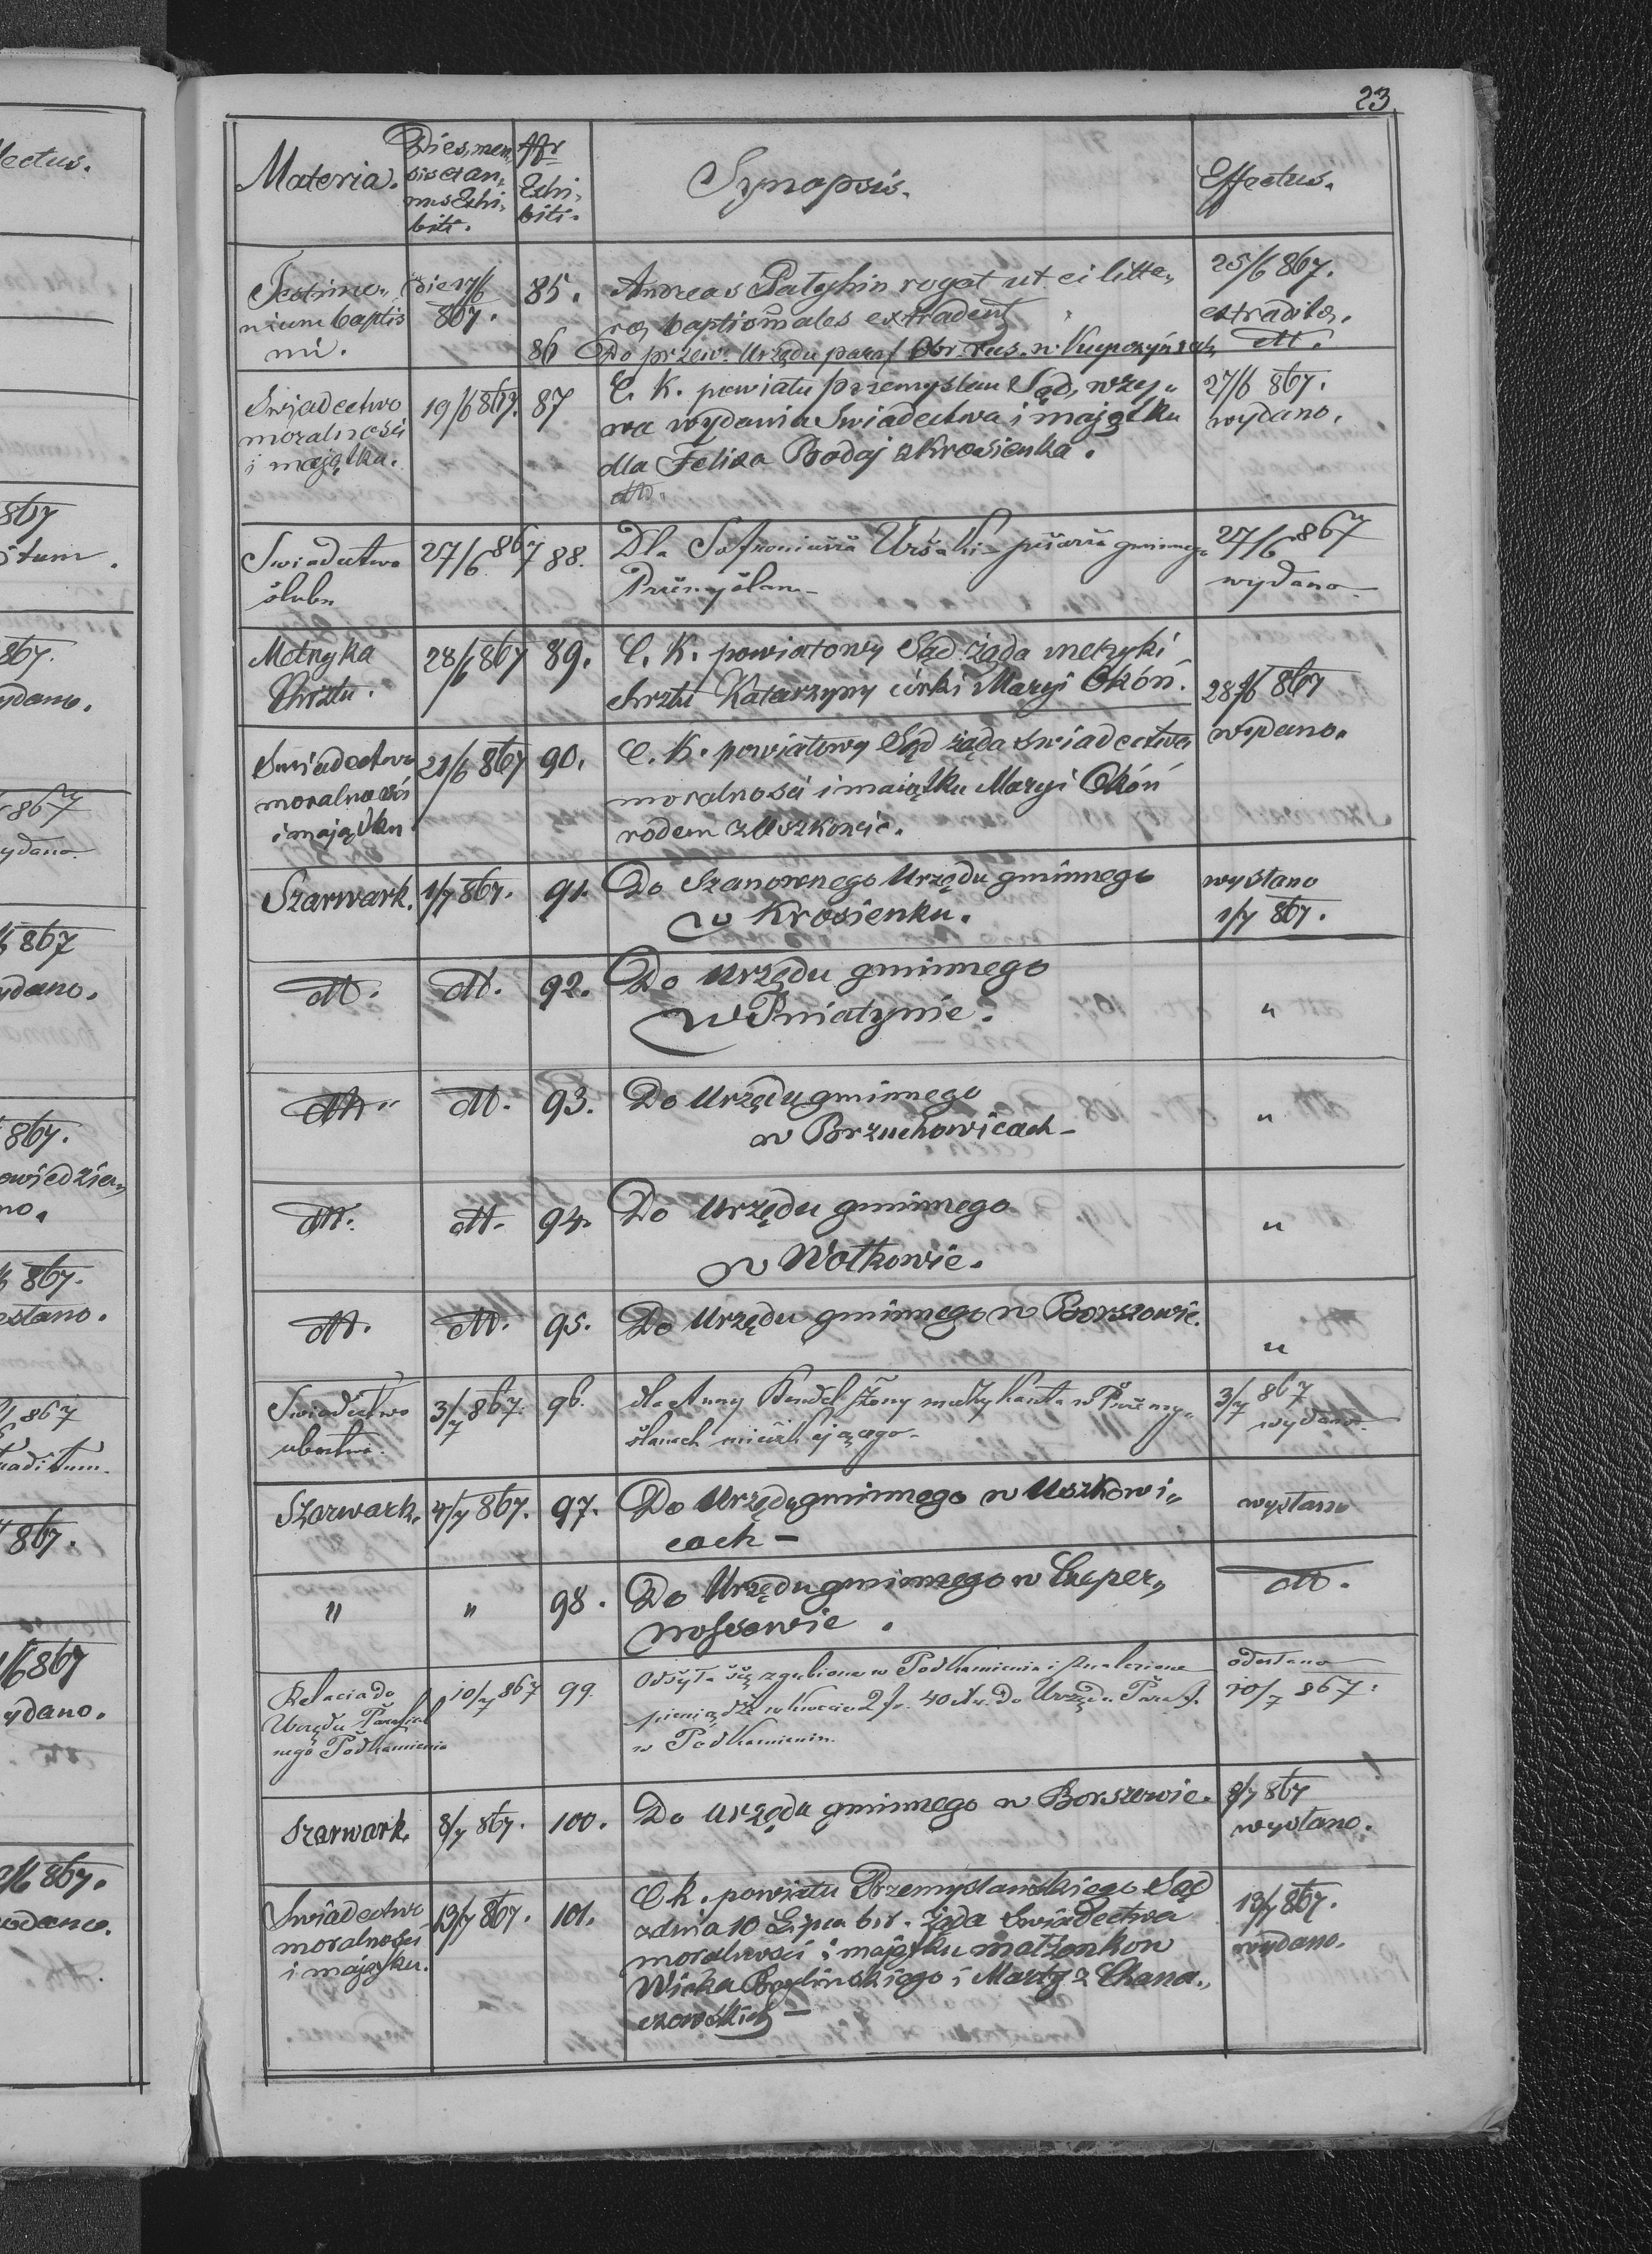 23
Materia.
Dies, men,
sis et an,
nus Exhi,
biti.
Nr
Exhi,
biti.
Synopsis.
Effectus.
Testimo,,
nium baptis
mi.
die 17/6
867.
85.
Andreas Patyhin rogat ut ei litte,,
ras baptismales extradent
25/6 867.
extraditæ.
86
Do przew. Urzędu paraf Obr. rus. w
dtt.
Swiadectwo
moralnosci
i majątku.
19/6 867.
87
C. K. powiatu przemyslan Sąd, wzy,,
wa wydania Swiadectwa i majątku
dla Felixa Bodaj z Krosienka.
dtto.
27/6 867.
wydano.
Swiadectwo
ślubu
27/6 867
88.
Dla Sofroniusza pisarza gminnego
27/6 867
wydano
Metryka
Chrztu.
28/6 867
89.
C. K. powiatowy Sąd żąda metryki
chrztu Katarzyny córki Maryi Okóń.
28/6 867
wydano.
Swiadectwo
moralnosci
i majątku
21/6 867
90.
C. K. powiatowy Sąd żąda swiadectwa
moralnosci i maiątku Maryi Okóń
rodem z Uszkowic.
Szarwark.
1/7 867.
91.
Do Szanownego Urzędu gminnego
w Krosienku.
wysłano
1/7 867.
dtt.
dtt.
92.
Do Urzędu gminnego
w Pniatynie.
"
dtt.
dtt.
93.
Do Urzędu gminnego
w Brzuchowicach-
"
dtt.
dtt.
94.
Do Urzędu gminnego
w Wołkowie.
"
dtt.
dtt.
95.
Do Urzędu gminnego w Borszowie.
"
Swiadectwo
ubóstwa.
3/7 867.
96.
dla Anny żony muzykanta w Przemy,,
ślanach mieszkającego-
3/7 867
wydano.
Szarwark.
4/7 867.
97.
Do Urzędu gminnego w Uszkowi,,
cach-
wysłano
"
"
98.
Do Urzędu gminnego w Ciemper,,
nosowie.
dtt.
Relacia do
Urzędu Parafial
nego Podkamienia
10/7 867
99.
Odsyła się zgubione w Podkamieniu i znalezione
pieniądze w kwocie 2 fr. 40 do Urzędu Paraf.
w Podkamieniu.
odesłano
10/7 867.
Szarwark.
8/7 867.
100.
Do Urzędu gminnego w Borszowie.
8/7 867
wysłano.
Swiadectwo
moralności
i majątku.
13/7 867.
101.
C k. powiatu Przemyslanskiego Sąd
z dnia 10 Lipca b.r. żąda Swiadectwa
moralnosci i majątku małżonkow
i Marty z Chana,,
czowskich-
13/7 867.
wydano.